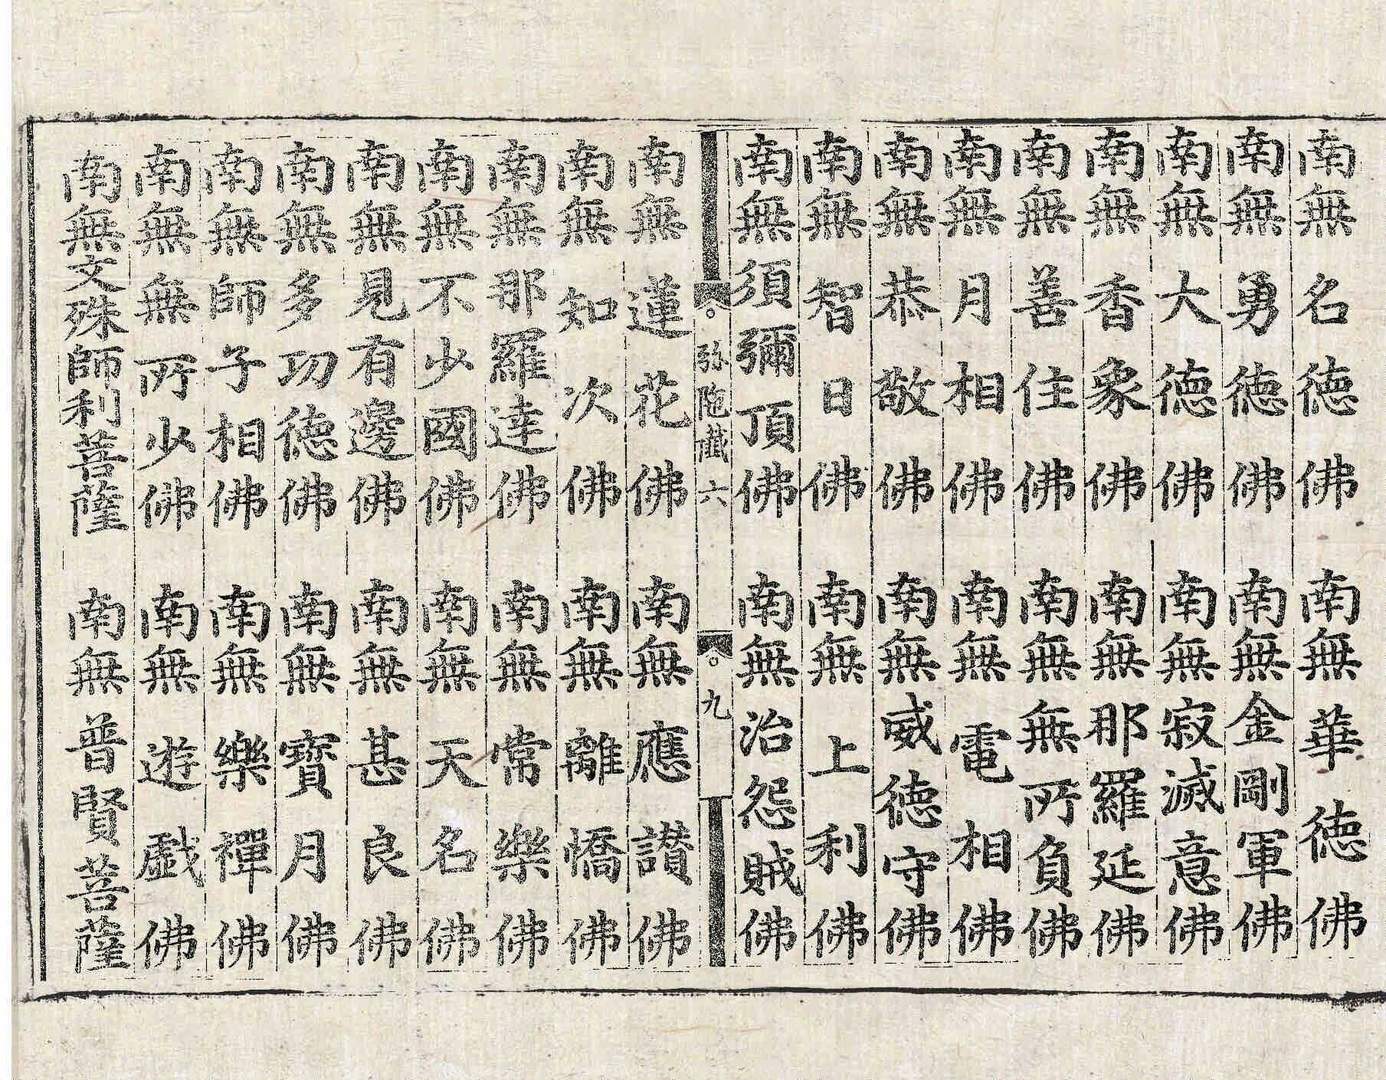 南無名德佛 南無華德佛
南無勇德佛 南無金剛軍佛
南無大德佛 南無寂滅意佛
南無香象佛 南無那羅延佛
南無善住佛 南無無所負佛
南無月相佛 南無電相佛
南無恭敬佛 南無威德守佛
南無智日佛 南無上利佛
南無須彌頂佛 南無治怨賊佛
弥陁懺 六 九
南無蓮花佛 南無應讃佛
南無知次佛 南無離憍佛
南無那羅達佛 南無常樂佛
南無不少國佛 南無天名佛
南無見有邊佛 南無甚良佛
南無多功德佛 南無寶月佛
南無師子相佛 南無樂禪佛
南無無所少佛 南無遊戲佛
南無文殊師利菩薩 南無普賢菩薩